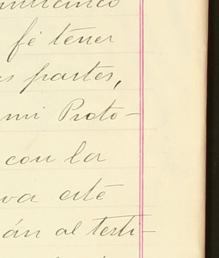 fé tener
partes,
mi Proto-
con la
va esté
án al testi-